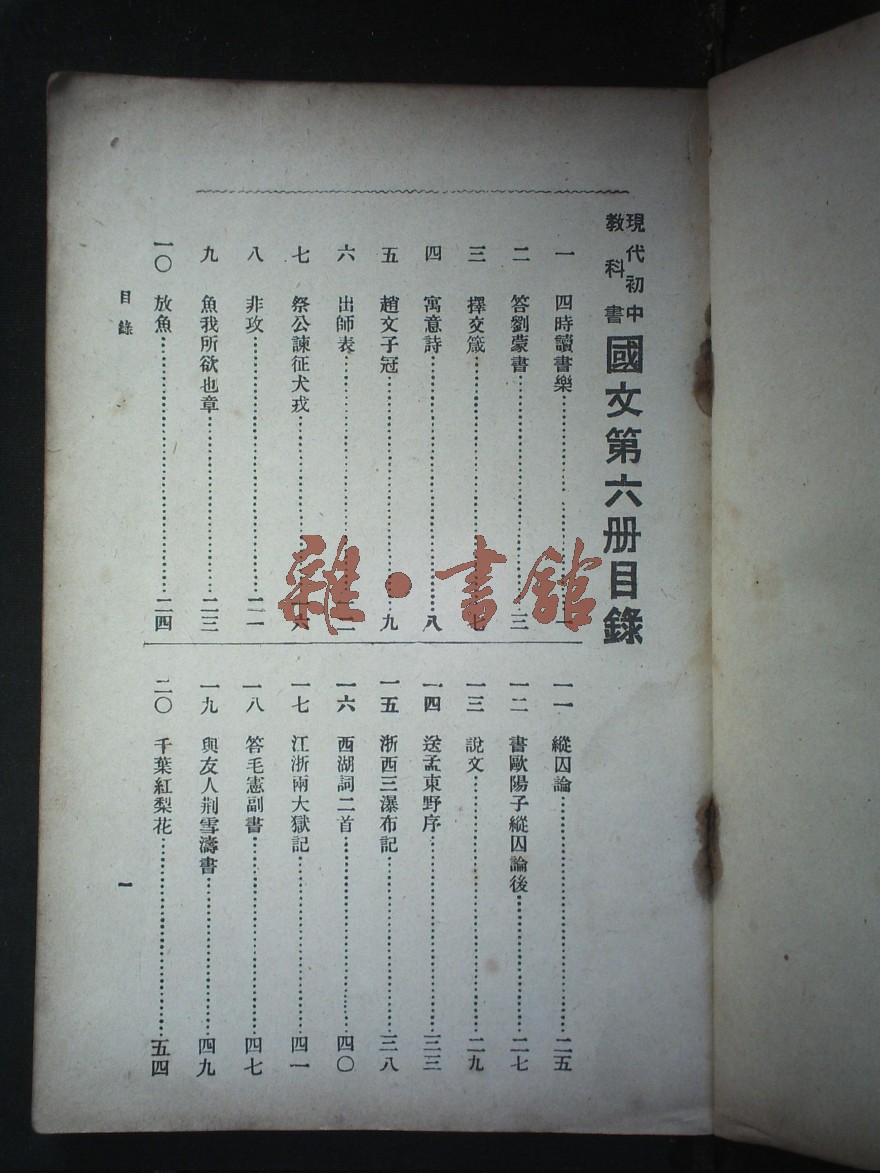 現代初中
教科書
國文第六册目錄
一 四時讀書樂 一
二 答劉蒙書 三
三 擇交箴 七
四 寓意詩 八
五 趙文子冠 九
六 出師表
七 祭公諫征犬戎 一六
八 非攻 二一
九 魚我所欲也章 二三
一〇 放魚 二四
一一 縱囚論 二五
一二 書歐陽子縱囚論後 二七
一三 說文 二九
一四 送孟東野序 三三
一五 浙西三瀑布記 三八
一六 西湖詞二首 四〇
一七 江浙兩大獄記 四一
一八 答毛憲副書 四七
一九 與友人荆雪濤書 四九
二〇 千葉紅梨花 五四
目錄
一
雜·書館